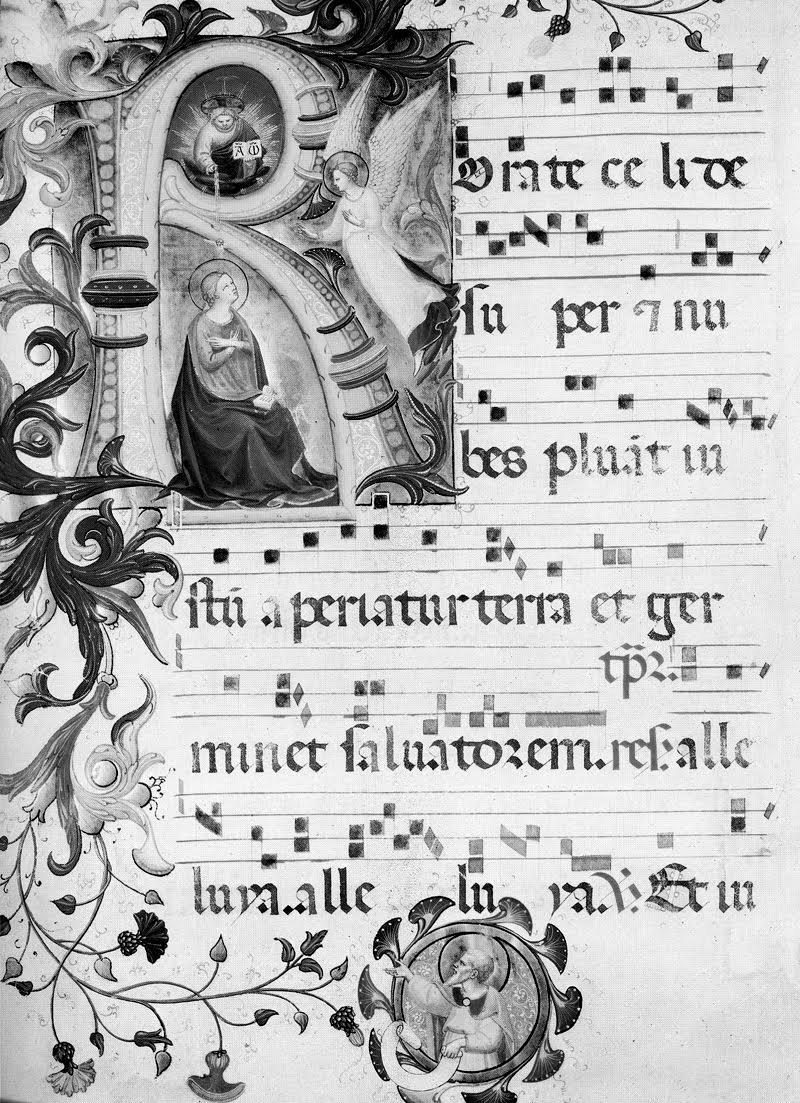 A ω
Rorate ce li de
su per ⁊ nu
bes pluāt iu
stū aperiatur terra et ger
minet saluatorem. res. alle
luya. alle lu ya. ℣. Et iu